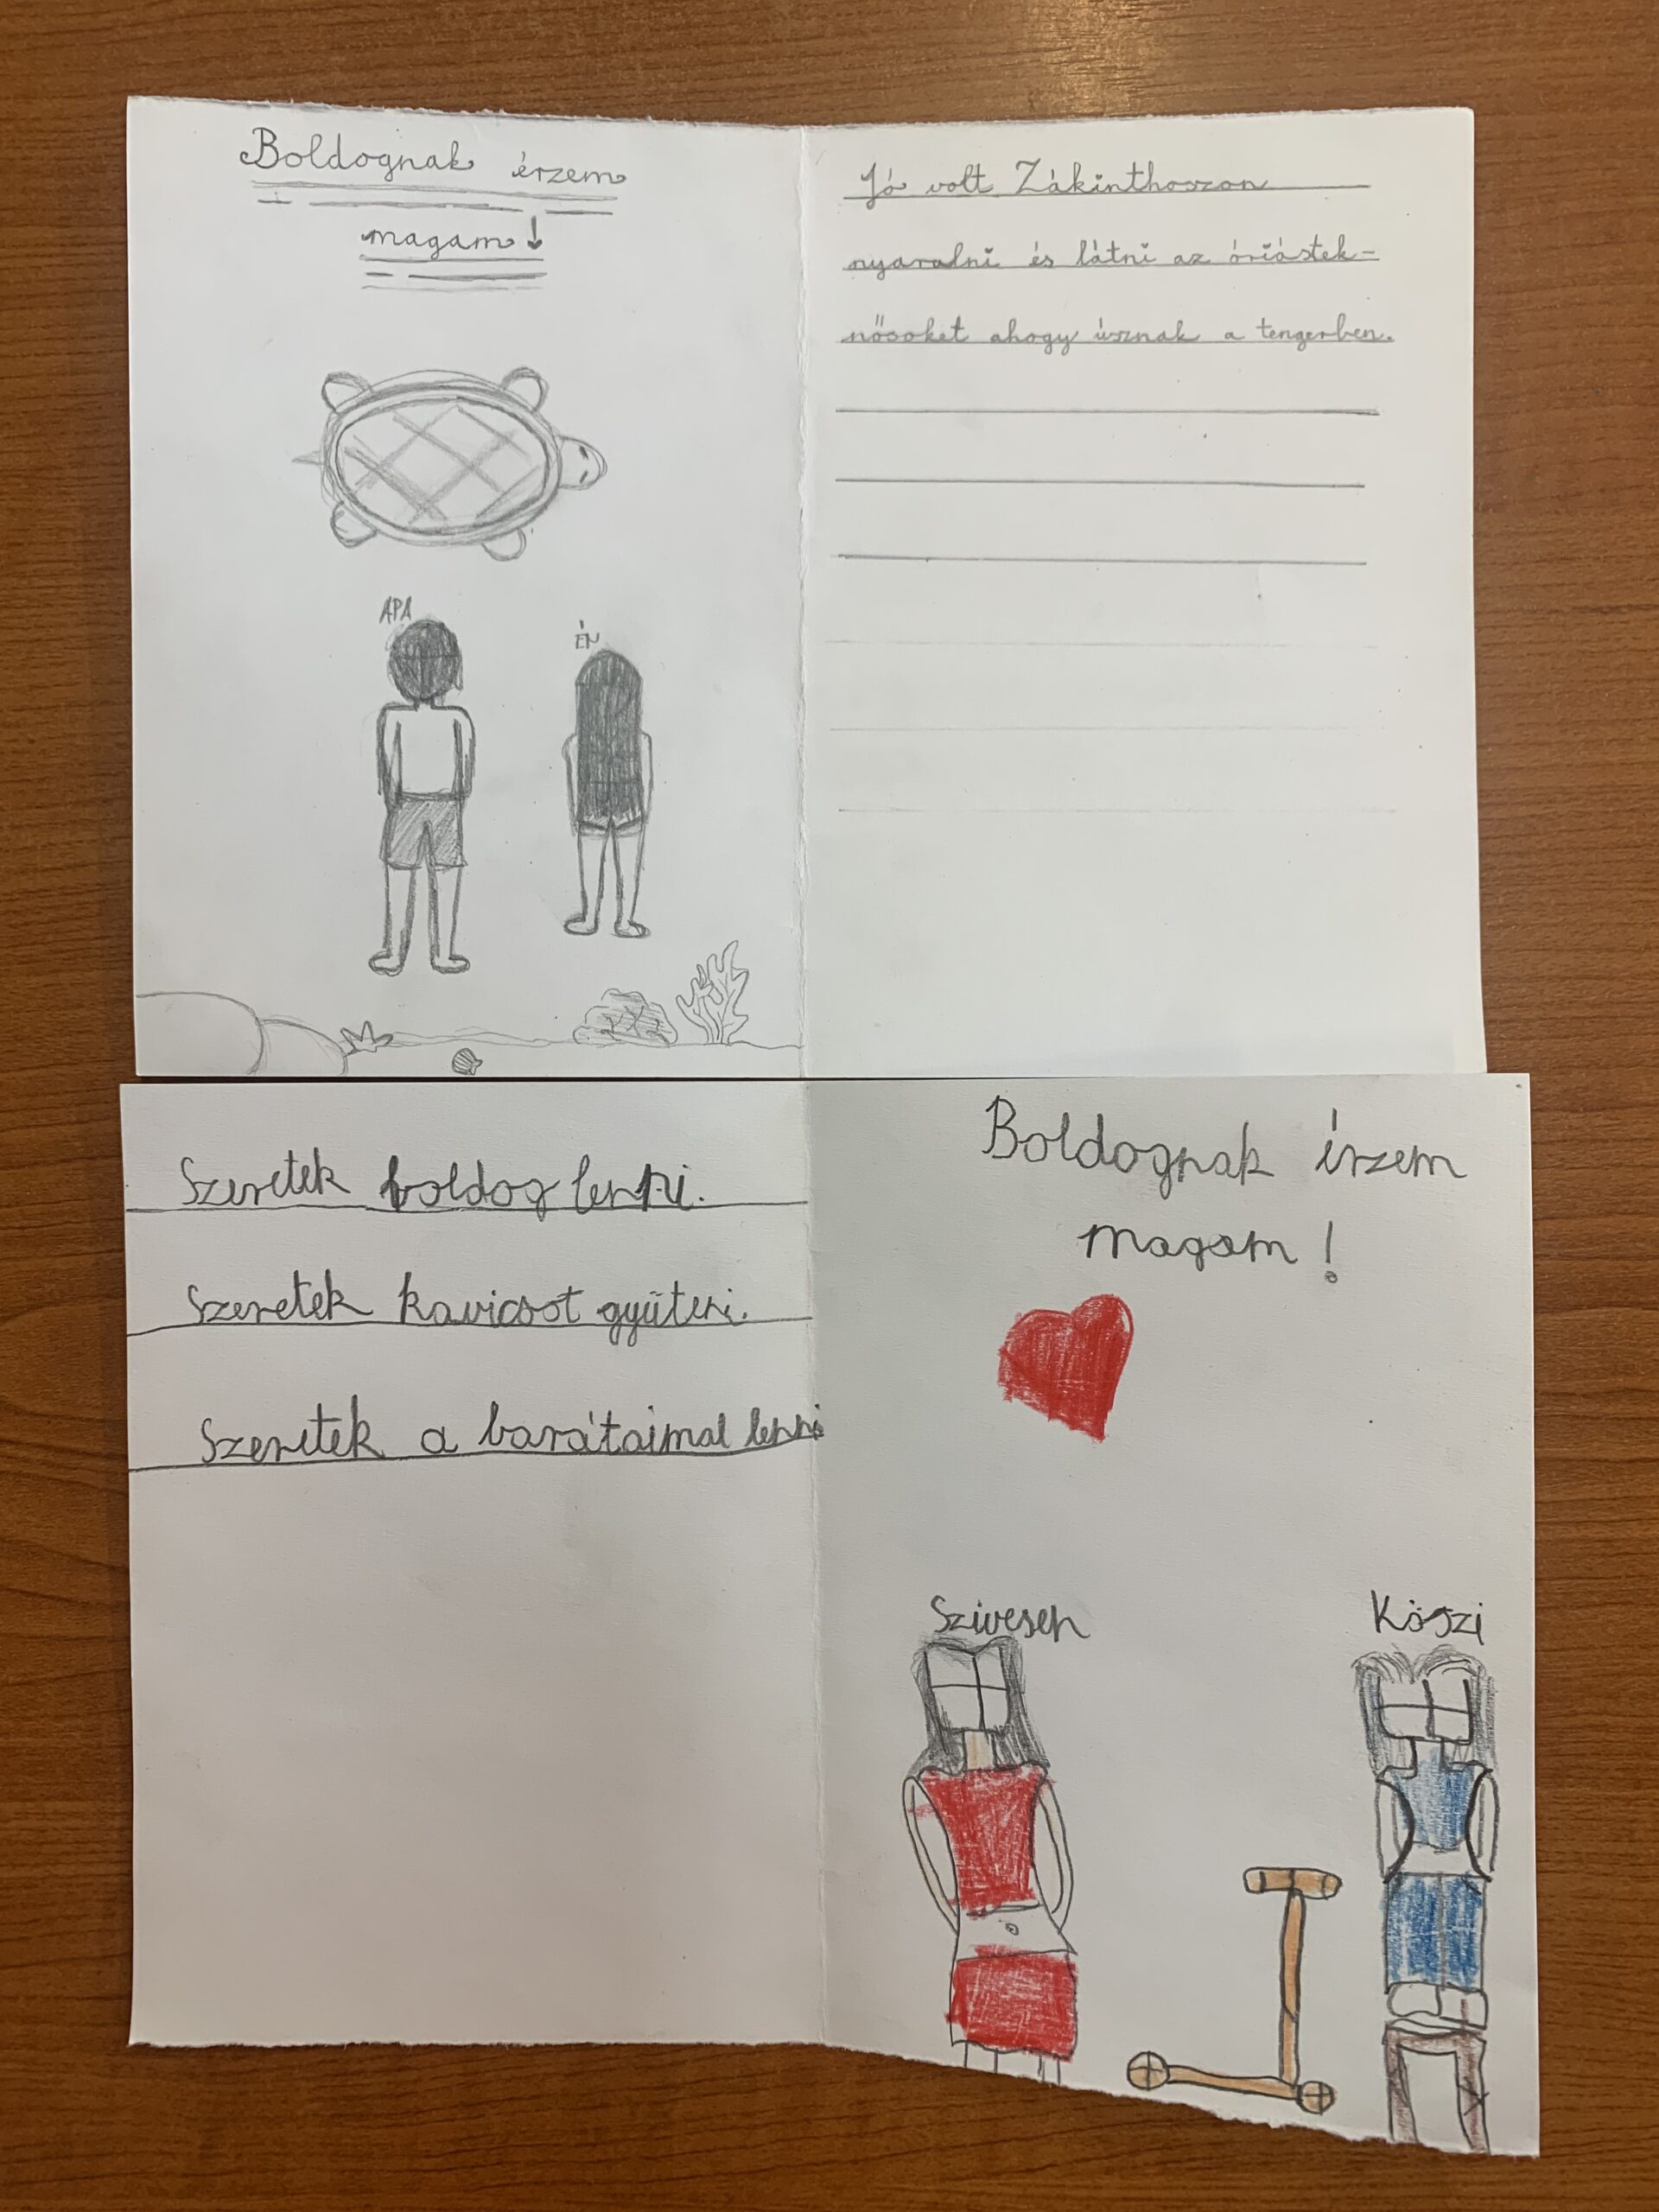 Boldognak érzem
magam!
APA
ÉN
Jó volt Zákinthoszon
nyaralni és látni az óriástek-
nősöket ahogy úsznak a tengerben.
Szeretek boldog lenni.
Szeretek kavicsot gyűteni.
Szeretek a barátaimal lenni
Boldognak érzem
magam!
Szivesen
Köszi